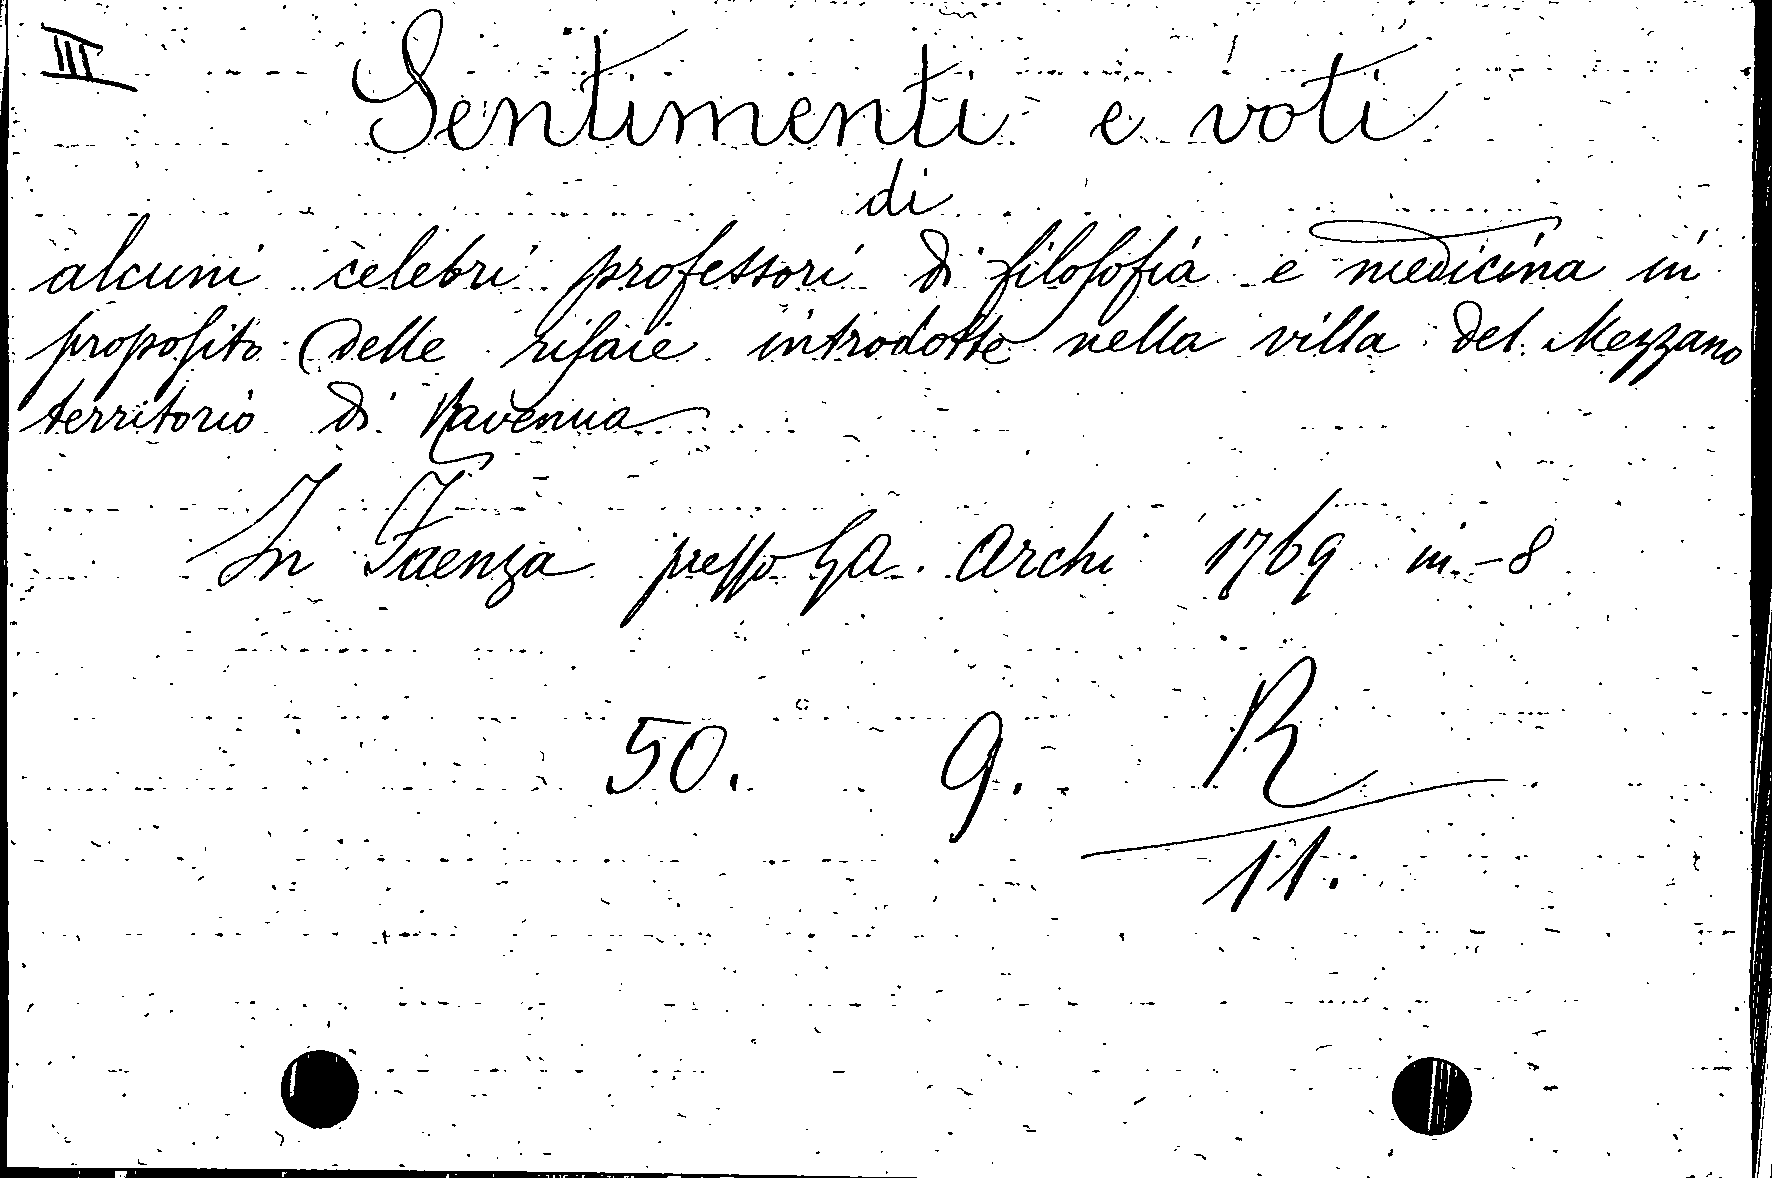 III
Sentimenti e voti
di
alcuni celebri professori di filosofia e medicina in
proposito delle risaie introdotte nella villa del Mezzano
territorio di Ravenna
In Faenza presso G. A. Archi 1769 in-8
50. 9. R
11.